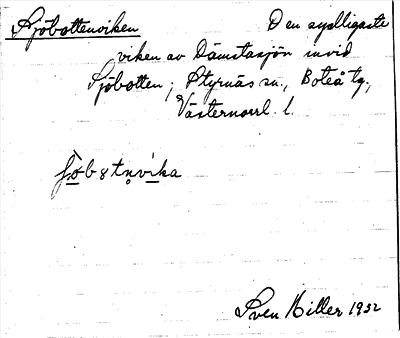 Sjöbottenviken Den sydligaste
viken av Dämstasjön invid
Sjöbotten, Styrnäs sn., Boteå tg.,
Västernorrl. l.
Sven Hiller 1932